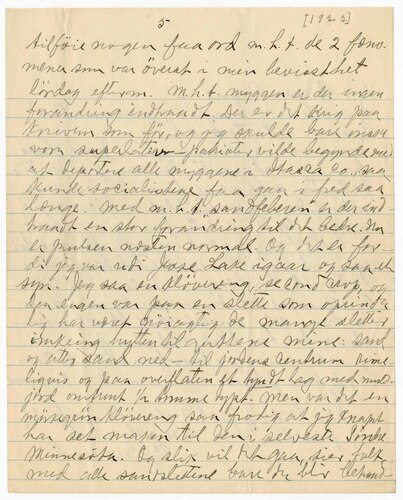 5
[1925]
tilføie nogen faa ord m.h.t. de 2 fæno-
mener som var øverst i min bevissthet
lørdag efterm. M.h.t. myggen er der ingen
forandring indtraadt. Der er det krig paa
kniven som før, og jeg skulde bare ønske
vore superlative patrioter vilde begynde med
at deportere alle myggene i Itasca Co., saa
kunde socialistene faa gaa i fred saa
længe. Med m.h.t. sandfeberen er der ind
traadt en stor forandring til det bedre. Nu
er pulsen næsten normal. Og det er for
di jeg var uti Jesse Lake igaar og saa et
syn. Jeg saa en kløvereng, second crop, og
den engen var paa en slette som oprinde
lig har været nøiagtig de mange sletter
omkring hytten til mine: sand
og atter sand ned til jordens centrum rime
ligvis og paa overflaten et tyndt lag med muld-
jord omtrent 'n tomme tykt. Men var det en
mørkgrøn kløvereng saa frodig at jeg knapt
har set maken til den i selveste Søndre
Minnesota. Og slik vil det gaa, sier folk
med alle sandslettene bare du blir behand-